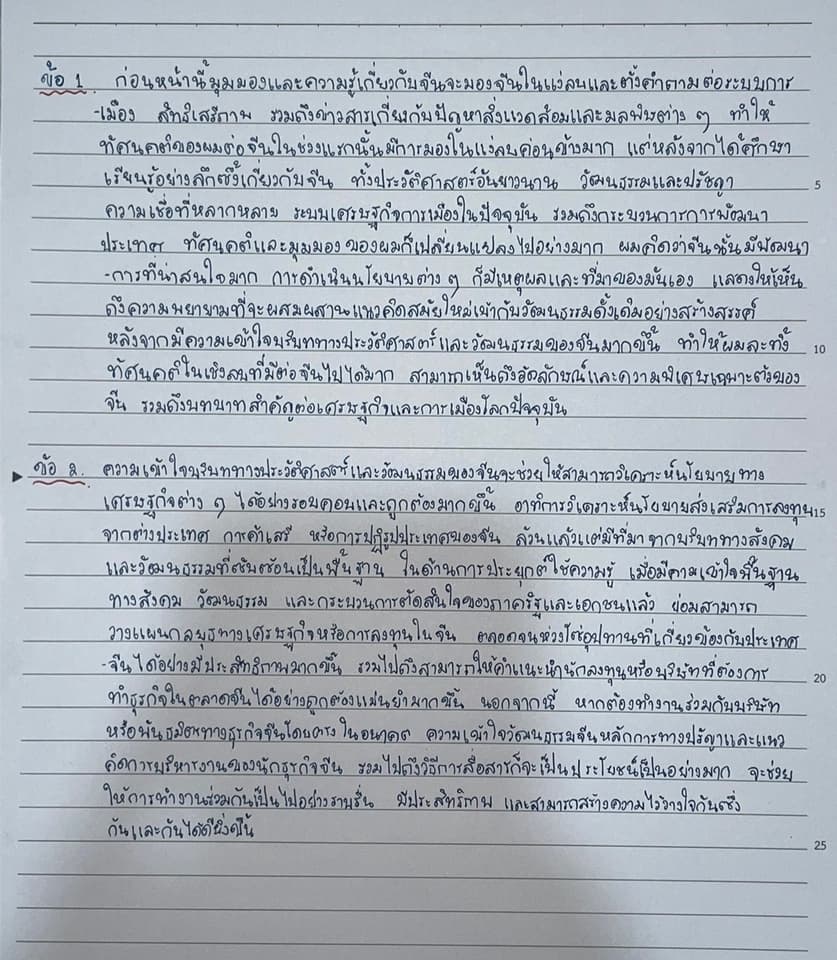 ข้อ 1 ก่อนหน้านี้มุมมองและความรู้เกี่ยวกับจีนจะมองจีนในแง่ลบและตั้งคำถามต่อระบบการ
-เมือง สิทธิเสรีภาพ รวมถึงข่าวสารเกี่ยวกับปัญหาสิ่งแวดล้อมและมลพิษต่าง ๆ ทำให้
ทัศนคติของผมต่อจีนในช่วงแรกนั้นมีการมองในแง่ลบค่อนข้างมาก แต่หลังจากได้ศึกษา
เรียนรู้อย่างลึกซึ้งเกี่ยวกับจีน ทั้งประวัติศาสตร์อันยาวนาน วัฒนธรรมและปรัชญา 5
ความเชื่อที่หลากหลาย ระบบเศรษฐกิจการเมืองในปัจจุบัน รวมถึงกระบวนการการพัฒนา
ประเทศ ทัศนคติและมุมมองของผมก็เปลี่ยนแปลงไปอย่างมาก ผมคิดว่าจีนนั้นมีพัฒนา
-การที่น่าสนใจมาก การดำเนินนโยบายต่าง ๆ ก็มีเหตุผลและที่มาของมันเอง แสดงให้เห็น
ถึงความพยายามที่จะผสมผสานแนวคิดสมัยใหม่เข้ากับวัฒนธรรมดั้งเดิมอย่างสร้างสรรค์
หลังจากมีความเข้าใจบริบททางประวัติศาสตร์และวัฒนธรรมของจีนมากขึ้น ทำให้ผมละทิ้ง 10
ทัศนคติในเชิงลบที่มีต่อจีนไปได้มาก สามารถเห็นถึงอัตลักษณ์และความพิเศษเฉพาะตัวของ
จีน รวมถึงบทบาทสำคัญต่อเศรษฐกิจและการเมืองโลกปัจจุบัน
ข้อ 2. ความเข้าใจบริบททางประวัติศาสตร์และวัฒนธรรมของจีนจะช่วยให้สามารถวิเคราะห์นโยบายทาง
เศรษฐกิจต่าง ๆ ได้อย่างรอบคอบและถูกต้องมากขึ้น อาทิการวิเคราะห์นโยบายส่งเสริมการลงทุน 15
จากต่างประเทศ การค้าเสรี หรือการปฏิรูปประเทศของจีน ล้วนแล้วแต่มีที่มาจากบริบททางสังคม
และวัฒนธรรมที่ซับซ้อนเป็นพื้นฐาน ในด้านการประยุกต์ใช้ความรู้ เมื่อมีความเข้าใจพื้นฐาน
ทางสังคม วัฒนธรรม และกระบวนการตัดสินใจของภาครัฐและเอกชนแล้ว ย่อมสามารถ
วางแผนกลยุทธทางเศรษฐกิจหรือการลงทุนในจีน ตลอดจนห่วงโซ่อุปทานที่เกี่ยวข้องกับประเทศ
-จีนได้อย่างมีประสิทธิภาพมากขึ้น รวมไปถึงสามารถให้คำแนะนำนักลงทุนหรือบริษัทที่ต้องการ 20
ทำธุรกิจในตลาดจีนได้อย่างถูกต้องแม่นยำมากขึ้น นอกจากนี้ หากต้องทำงานร่วมกับบริษัท
หรือพันธมิตรทางธุรกิจจีนโดยตรงในอนาคต ความเข้าใจวัฒนธรรมจีนหลักการทางปรัญาและแนว
คิดการบริหารงานของนักธุรกิจจีน รวมไปถึงวิธีการสื่อสารก็จะเป็นประโยชน์เป็นอย่างมาก จะช่วย
ให้การทำงานร่วมกันเป็นไปอย่างราบรื่น มีประสิทธิภาพ และสามารถสร้างความไว้วางใจกันซึ่ง
กันและกันได้ดียิ่งขึ้น 25